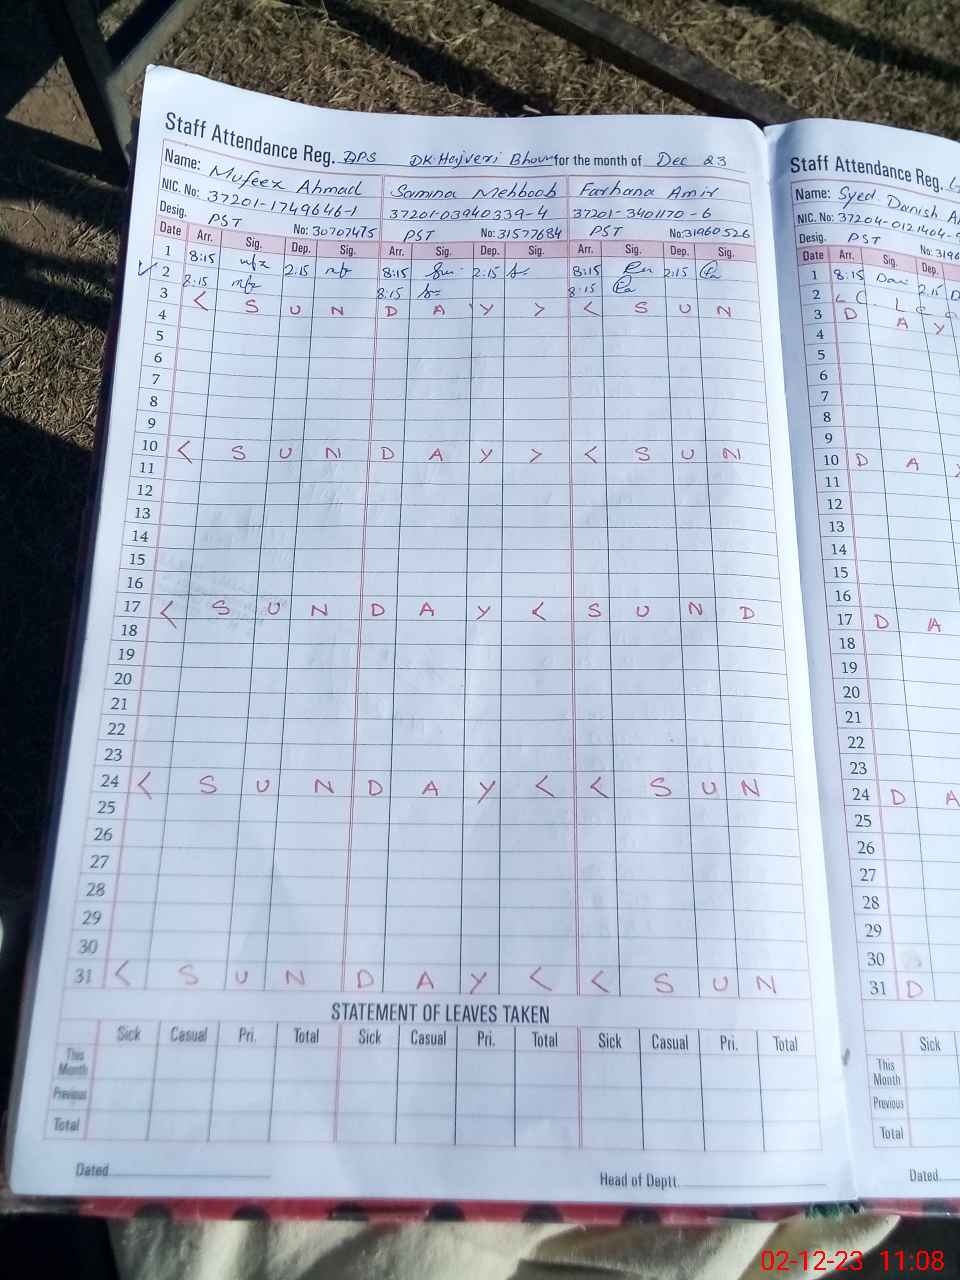 Staff Attendance Reg. DPS DK Hajveri for the month of Dec 23
Name: Mufeex Ahmad Samina Mehboob Farhana Amir
NIC. No: 37201-1749646-1 37201-03940339-4 37201-3401170-6
Desig. PST No: 30707475 PST No: 31577684 PST No: 31960526
Date Arr. Sig. Dep. Sig. Arr. Sig. Dep. Sig. Arr. Sig. Dep. Sig.
1 8:15 2:15 8:15 2:15 8:15 2:15
2 8:15 8:15 8:15
3 < S U N D A Y > < S U N
4
5
6
7
8
9
10 < S U N D A Y > < S U N
11
12
13
14
15
16
17 < S U N D A Y < S U N D
18
19
20
21
22
23
24 < S U N D A Y < < S U N
25
26
27
28
29
30
31 < S U N D A Y < < S U N
STATEMENT OF LEAVES TAKEN
Sick Casual Pri. Total Sick Casual Pri. Total Sick Casual Pri. Total
This Month
Previous
Total
Dated
Head of Deptt.
Staff Attendance Reg.
Name: Syed Danish
NIC. No: 37204-0121404-
Desig. PST No: 3196
Date Arr. Sig. Dep.
1 8:15 2:15
2 L
3 D A Y
4
5
6
7
8
9
10 D A
11
12
13
14
15
16
17 D A
18
19
20
21
22
23
24 D A
25
26
27
28
29
30
31 D
Sick
This Month
Previous
Total
Dated
02-12-23 11:08